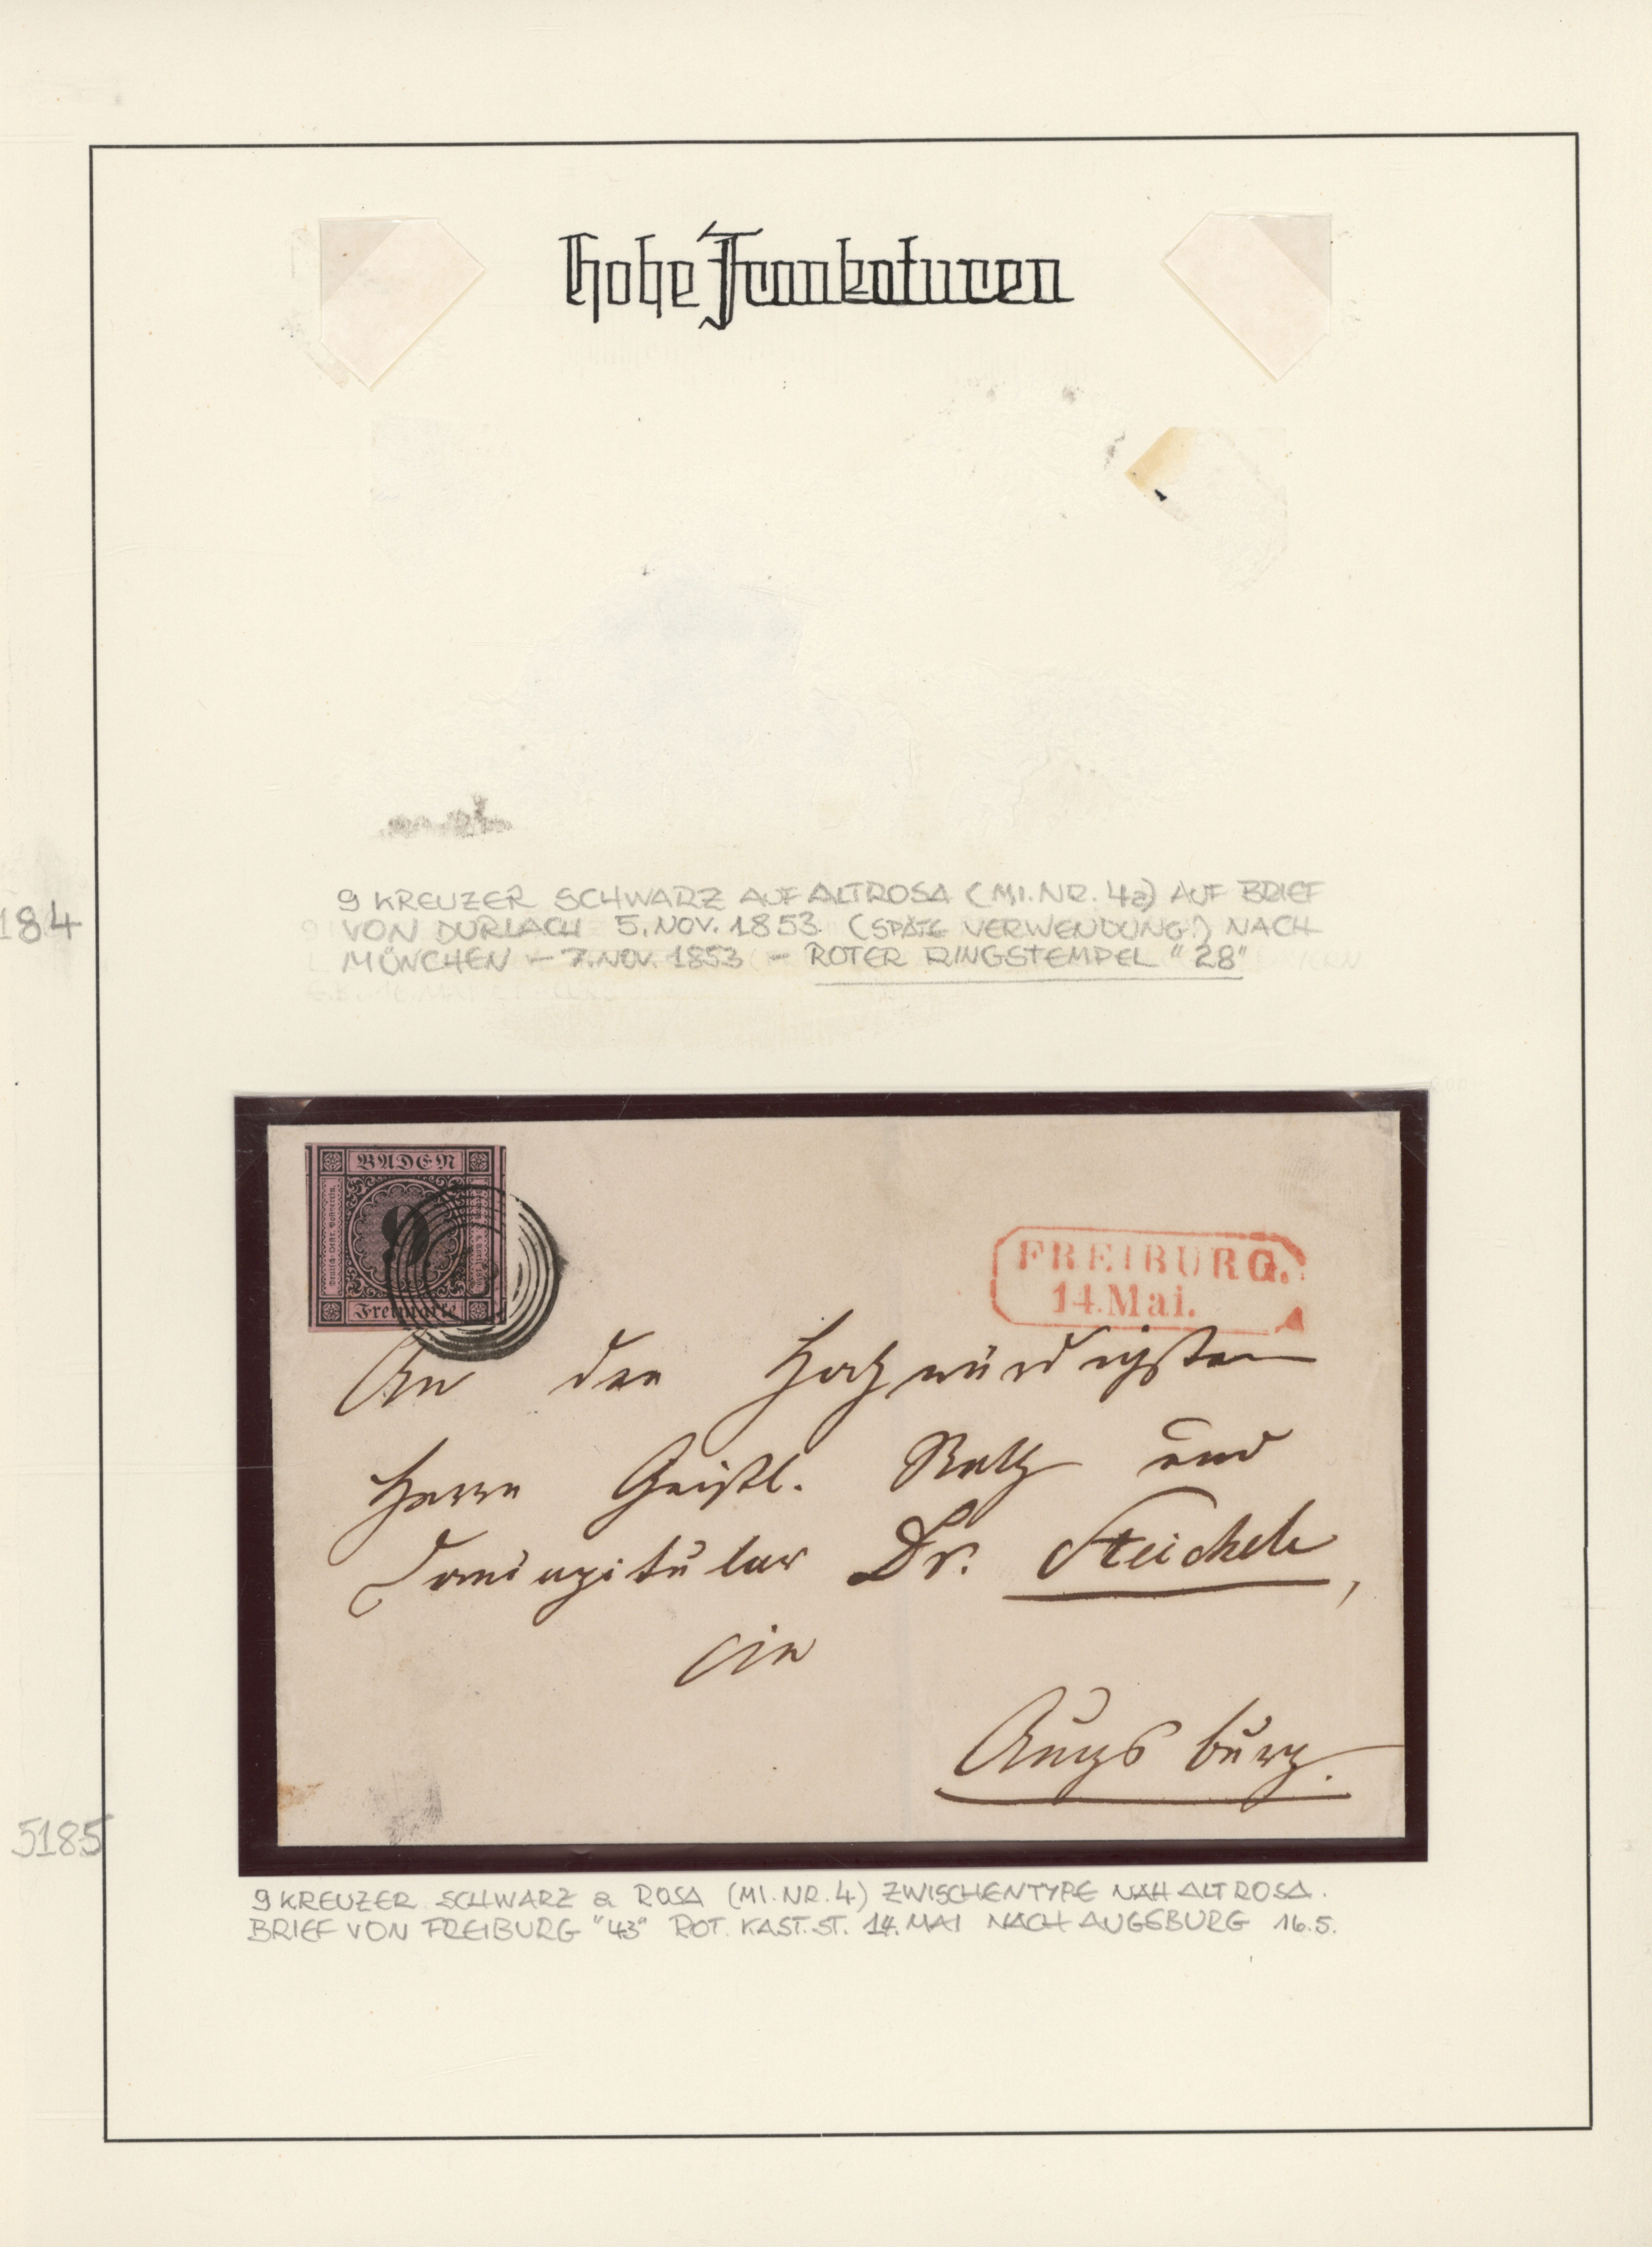 Hohe Frankaturen
9 KREUZER SCHWARZ AUF ALTROSA (MI.NR. 4a) AUF BRIEF
184
VON DURLACH 5. NOV. 1853 (SPÄTE VERWENDUNG!) NACH
MÜNCHEN - 7. NOV. 1853 - ROTER RINGSTEMPEL "28"
BADEN
9
Freimarke
FREIBURG.
14. Mai.
An den Hochwürdigsten
Herrn Geistl. Rath und
Domcapitular Dr. Steichele,
in
Augsburg.
5185
9 KREUZER SCHWARZ a ROSA (MI.NR.4) ZWISCHENTYPE NAH ALTROSA.
BRIEF VON FREIBURG "43" ROT. KAST.ST. 14. MAI NACH AUGSBURG 16.5.